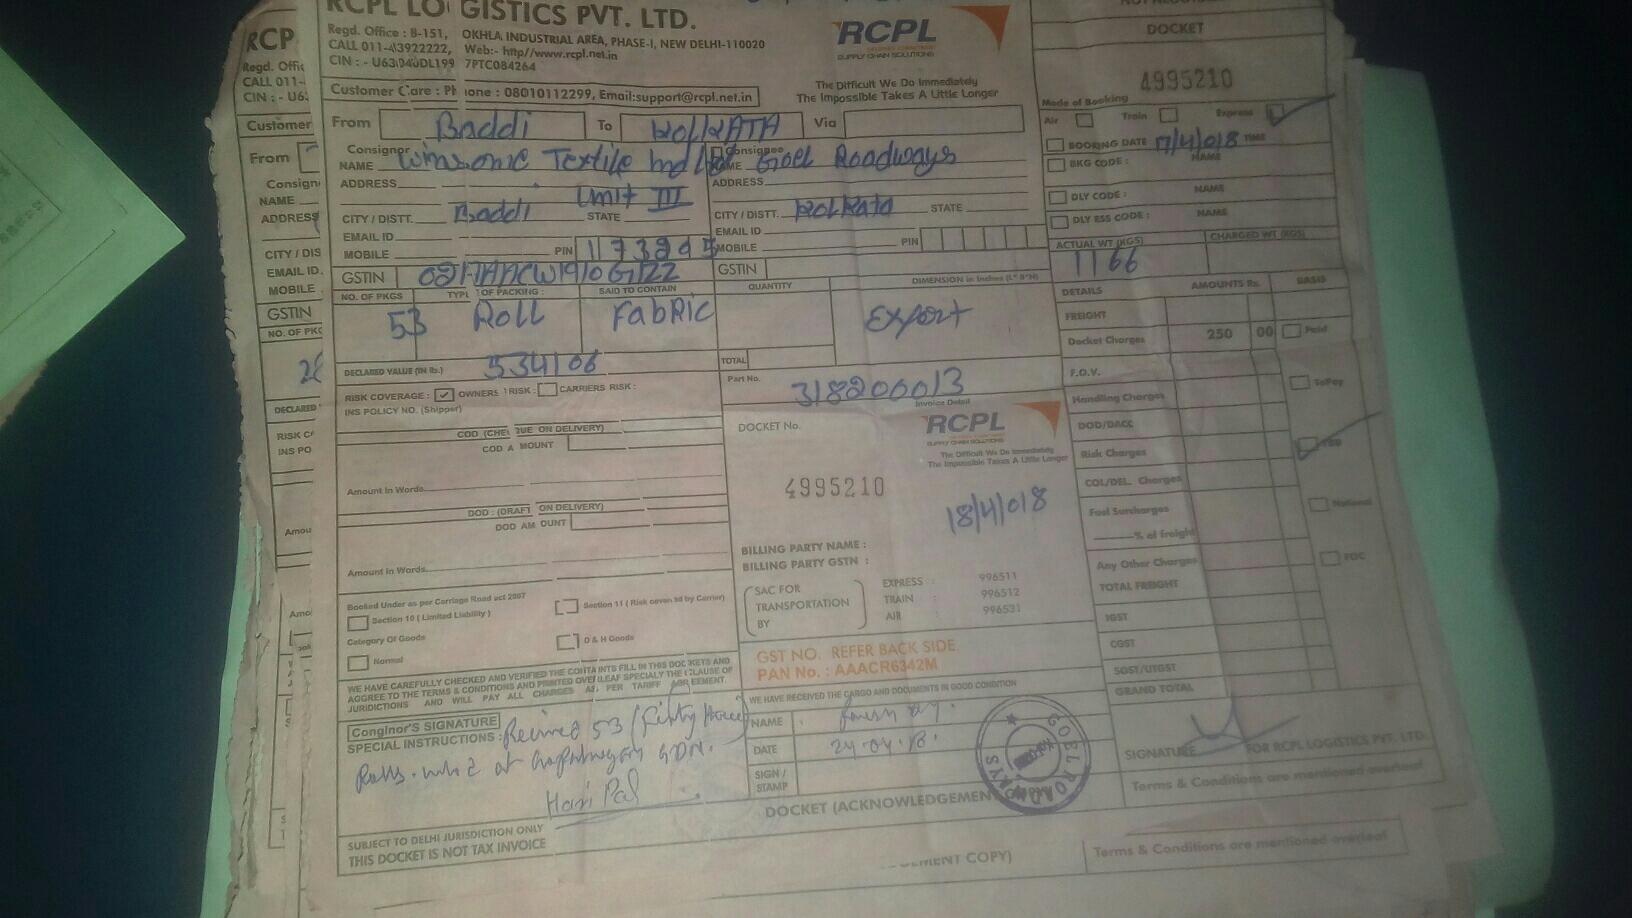 RCPL LOGISTICS PVT. LTD.
Regd. Office : B-151, OKHLA INDUSTRIAL AREA, PHASE-I, NEW DELHI-110020
CALL 011-43922222, Web:- http//www.rcpl.net.in
CIN : - U63040DL1997PTC084264
Customer Care : Phone : 08010112299, Email:support@rcpl.net.in
RCPL
SUPPLY CHAIN SOLUTIONS
The Difficult We Do Immediately
The Impossible Takes A Little Longer
DOCKET
4995210
Mode of Booking
Air Train Express
From Baddi To KOLKATA Via
BOOKING DATE 17/4/018 TIME
BKG CODE : NAME
DLY CODE : NAME
DLY ESS CODE : NAME
Consignor
NAME Winsome Textile Ind Ltd
ADDRESS Unit III
CITY / DISTT. Baddi STATE
EMAIL ID
MOBILE PIN
GSTIN
Consignee
NAME Goel Roadways
ADDRESS
CITY / DISTT. Kolkata STATE
EMAIL ID
MOBILE PIN
GSTIN
ACTUAL WT (KGS) CHARGED WT (KGS)
1166
NO. OF PKGS TYPE OF PACKING : SAID TO CONTAIN QUANTITY DIMENSION in Inches (L* B*H)
53 Roll FABRIC Export
TOTAL
DECLARED VALUE (IN Rs.) 534106
Part No. 318200013
Invoice Detail
RISK COVERAGE : OWNERS RISK : CARRIERS RISK :
INS POLICY NO. (Shipper)
COD (CHEQUE ON DELIVERY)
COD AMOUNT
Amount in Words
DOD : (DRAFT ON DELIVERY)
DOD AMOUNT
Amount in Words
Booked Under as per Carriage Road act 2007
Section 10 ( Limited Liability )
Section 11 ( Risk covered by Carrier)
Category Of Goods
Normal
D & H Goods
DOCKET No.
RCPL
SUPPLY CHAIN SOLUTIONS
The Difficult We Do Immediately
The Impossible Takes A Little Longer
4995210
18/4/018
BILLING PARTY NAME :
BILLING PARTY GSTN :
SAC FOR TRANSPORTATION BY
EXPRESS : 996511
TRAIN : 996512
AIR : 996531
GST NO. REFER BACK SIDE
PAN No. : AAACR6342M
DETAILS AMOUNTS Rs. BASIS
FREIGHT
Docket Charges 250 00 Paid
F.O.V.
ToPay
Handling Charges
DOD/DACC
Risk Charges
COL/DEL. Charges
Fuel Surcharges
% of freight
National
Any Other Charges
FOC
TOTAL FREIGHT
IGST
CGST
SGST/UTGST
GRAND TOTAL
WE HAVE CAREFULLY CHECKED AND VERIFIED THE CONTAINTS FILL IN THIS DOCKETS AND
AGGREE TO THE TERMS & CONDITIONS AND PRINTED OVERLEAF SPECIALY THE CLAUSE OF
JURIDICTIONS AND WILL PAY ALL CHARGES AS PER TARIFF AGREEMENT.
Conginor's SIGNATURE
SPECIAL INSTRUCTIONS : Received 53 (Fifty three)
Rolls
Hari Pal
WE HAVE RECEIVED THE CARGO AND DOCUMENTS IN GOOD CONDITION
NAME
DATE 24.04.18.
SIGN / STAMP
GOEL ROADWAYS
SIGNATURE FOR RCPL LOGISTICS PVT. LTD.
DOCKET (ACKNOWLEDGEMENT
Terms & Conditions are mentioned overleaf
SUBJECT TO DELHI JURISDICTION ONLY
THIS DOCKET IS NOT TAX INVOICE
EMENT COPY)
Terms & Conditions are mentioned overleaf